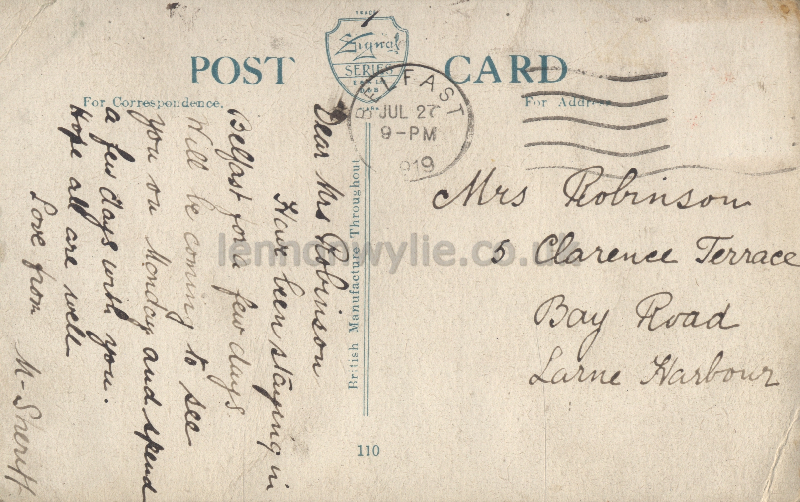 TRADE
Signal
SERIES
POST CARD
For Correspondence.
For Address
BELFAST
JUL 27
9-PM
1919
Dear Mrs Robinson
Have been staying in
Belfast for a few days
Will be coming to see
you on Monday and spend
a few days with you.
Hope all are well
Love from
M-Sheriff
Mrs Robinson
5 Clarence Terrace
Bay Road
Larne Harbour
British Manufacture Throughout
110
lemonwylie.co.uk